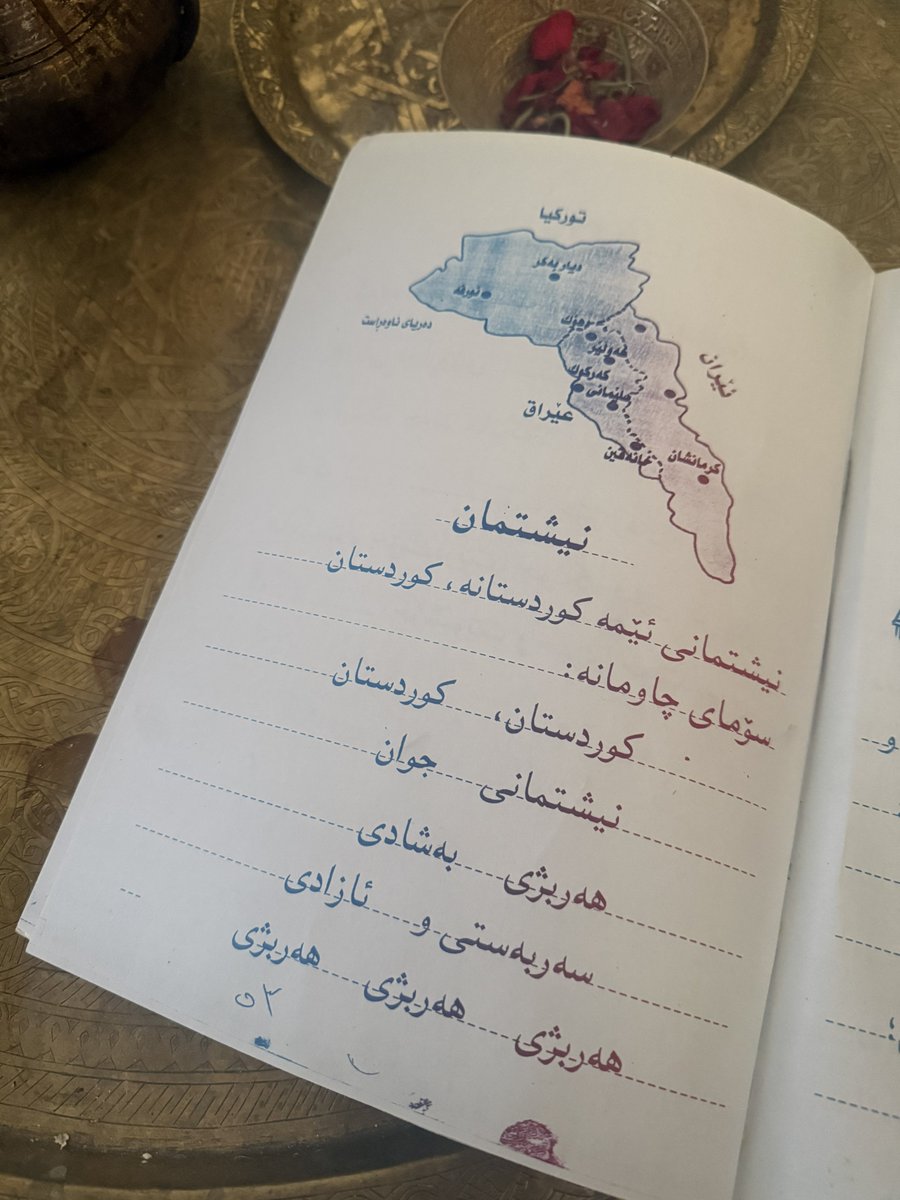 تورکیا
دیاربەکر
ئورفە
دەریای ناوەڕاست
دهۆک
هەولێر
کەرکوک
سلێمانی
ئێران
عێراق
خانەقین
کرمانشان
نیشتمان
نیشتمانی ئێمە کوردستانە، کوردستان
سۆمای چاومانە:
کوردستان، کوردستان
نیشتمانی جوان
هەربژی بەشادی
سەربەستی و ئازادی
هەربژی هەربژی هەربژی
٥٣
و